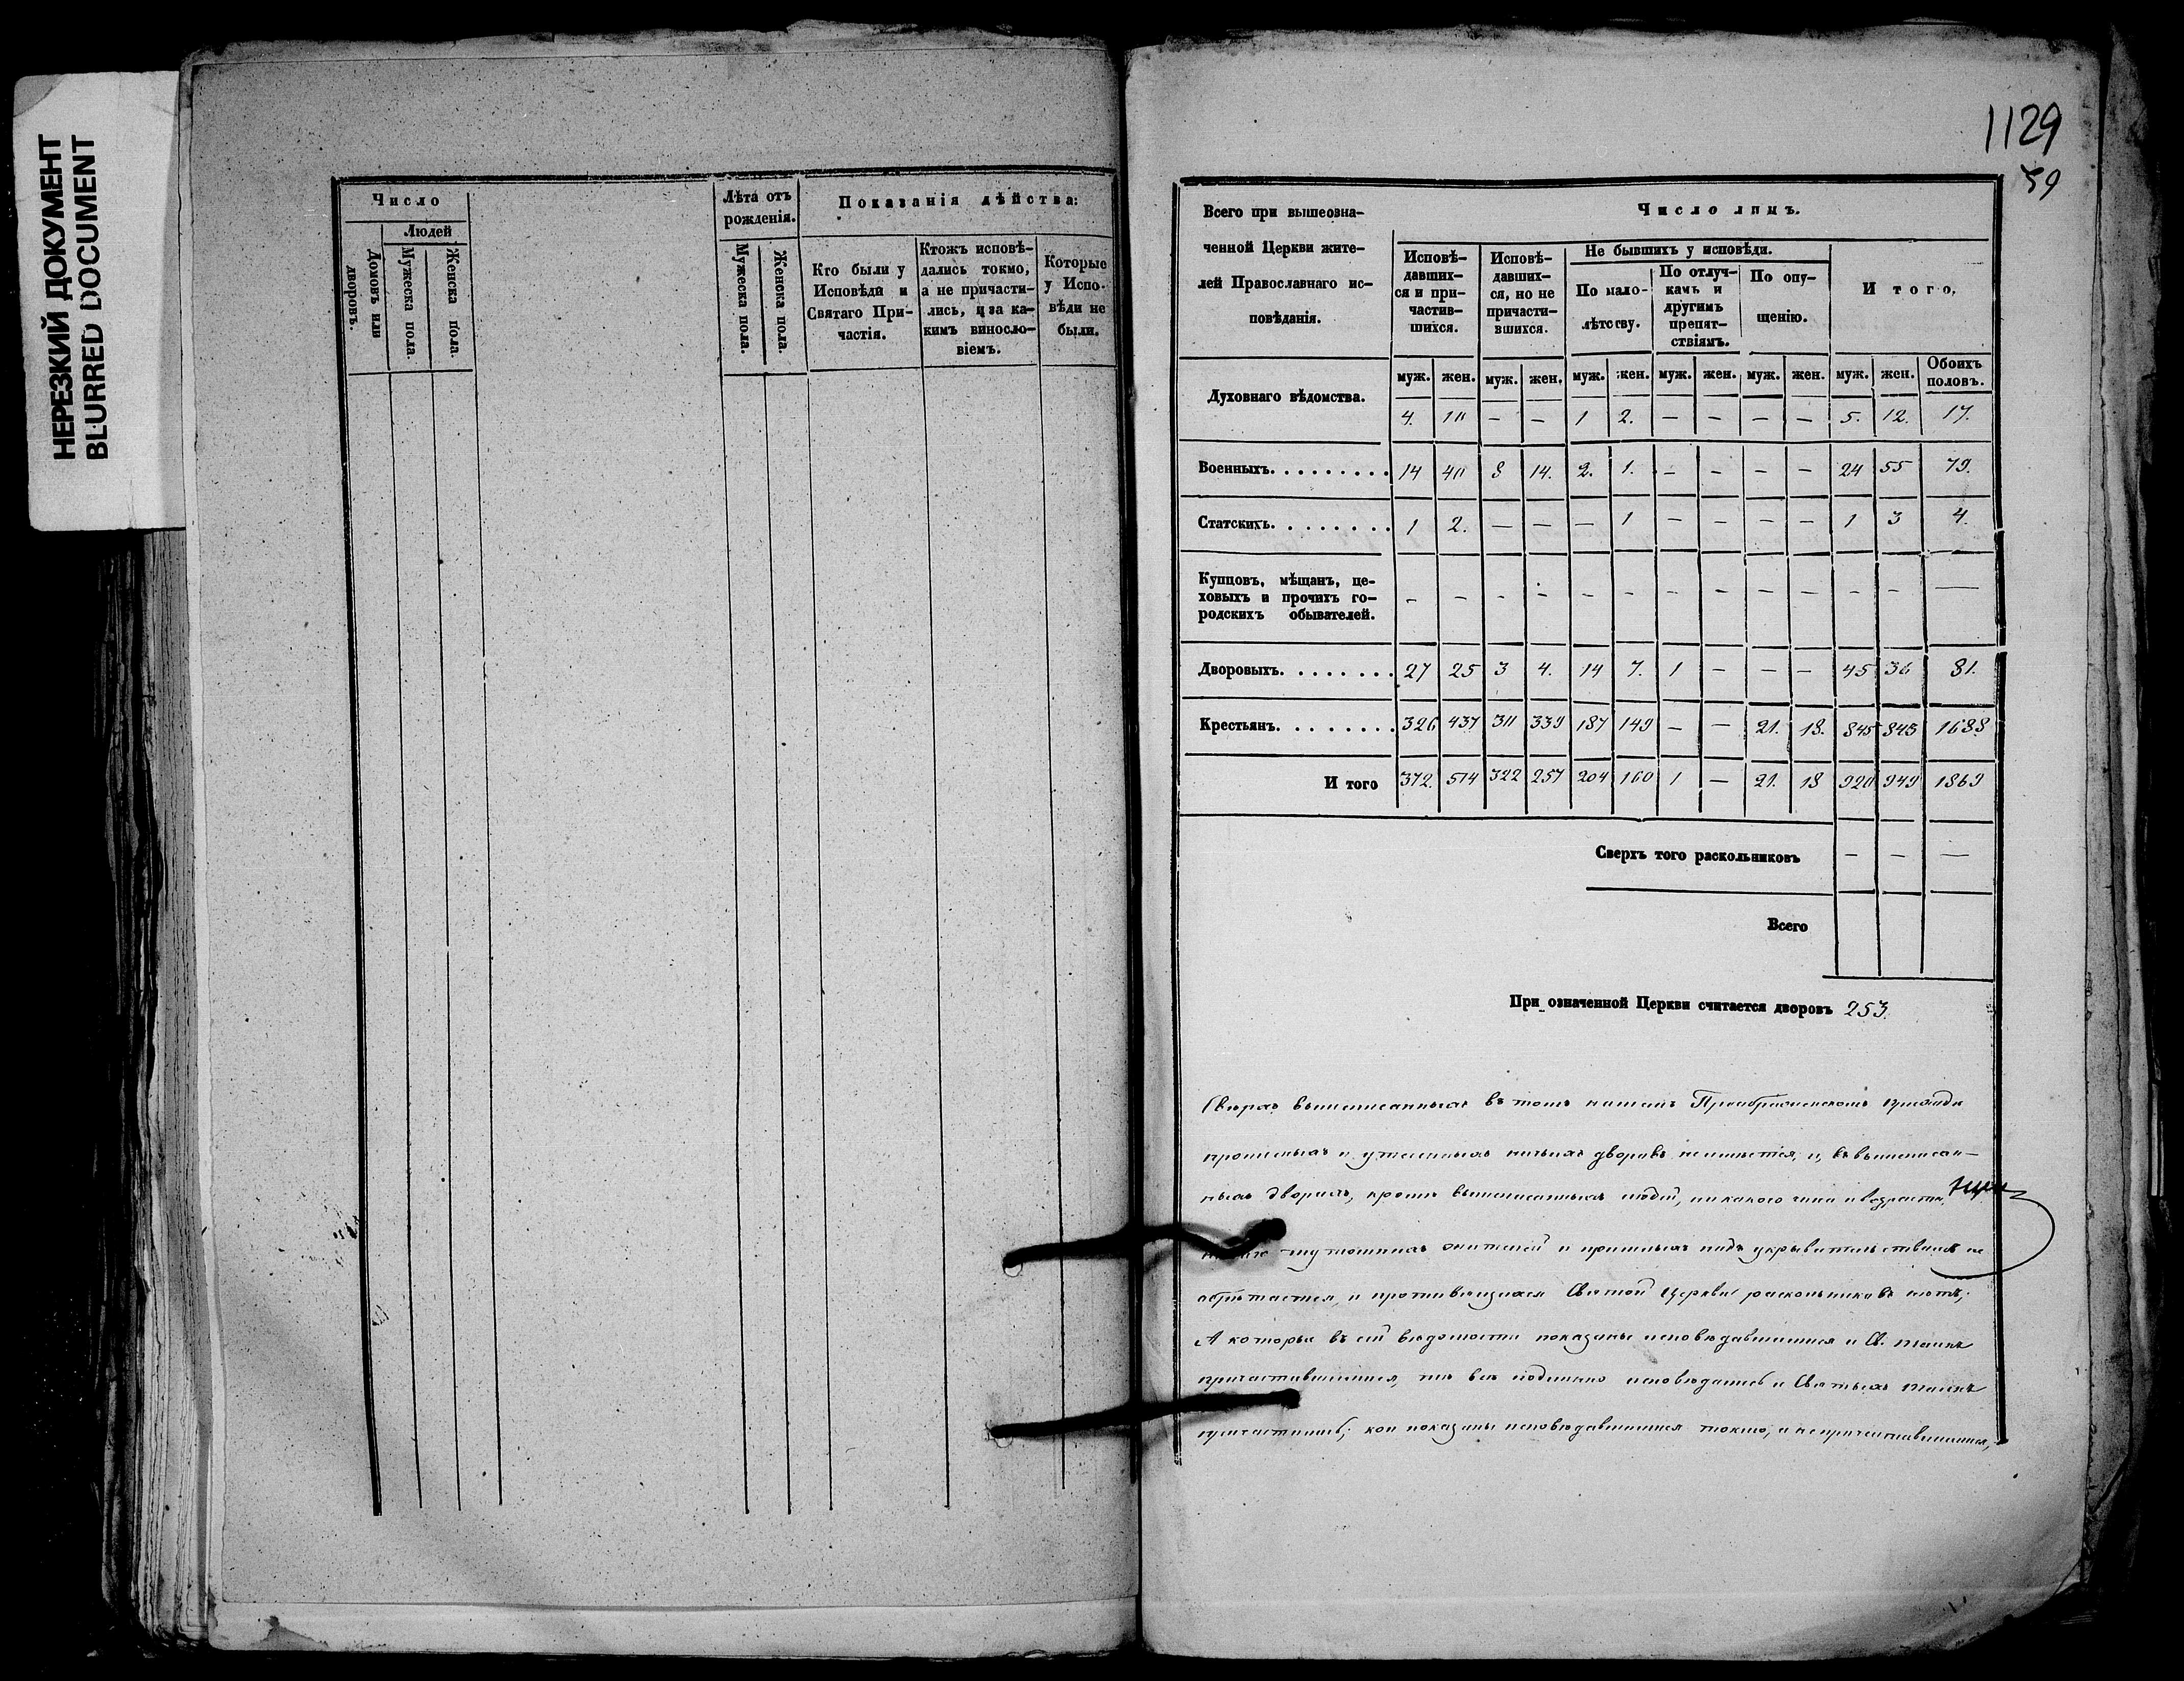 НЕРЕЗКИЙ ДОКУМЕНТ
BLURRED DOCUMENT
Число
Людей
Домовъ или дворовъ.
Мужеска пола.
Женска пола.
Лѣта отъ рожденія.
Мужеска пола.
Женска пола.
Показанія дѣйства:
Кто были у Исповѣди и Святаго Причастія.
Ктожъ исповѣдались токмо, а не причастились, и за какимъ винословіемъ.
Которые у Исповѣди не были.
1129
59
Всего при вышеозначенной Церкви жителей Православнаго исповѣданія.
Число лицъ.
Исповѣдавшихся и причастившихся.
Исповѣдавшихся, но не причастившихся.
Не бывшихъ у исповѣди.
По малолѣтсву.
По отлучкамъ и другимъ препятствіямъ.
По опущенію.
Итого.
муж. жен. муж. жен. муж. жен. муж. жен. муж. жен. муж. жен. Обоихъ половъ.
Духовнаго вѣдомства. 4. 10 — — 1 2. — — — — 5. 12. 17.
Военныхъ. 14 40 8 14. 2. 1. — — — — 24 55 79.
Статскихъ. 1 2. — — — 1 — — — — 1 3 4.
Купцовъ, мѣщанъ, цеховыхъ и прочихъ городскихъ обывателей. — — — — — — — — — — — — —
Дворовыхъ. 27 25 3 4. 14 7. 1 — — — 45 36 81.
Крестьянъ. 326 437 311 339 187 149 — — 21. 18. 845 843 1688
И того 372. 514 322 257 204 160 1 — 21. 18 920 949 1869
Сверхъ того раскольниковъ — — —
Всего
При означенной Церкви считается дворовъ 253.
Сверхъ вышеписанныхъ въ томъ нашемъ Преображенскомъ приходѣ
прошлыхъ и ничьихъ дворовъ неимѣется, и, въ вышеписан-
ныхъ дворахъ, кромѣ вышеписанныхъ людей, никакого чина и возраста,
тутошнихъ жителей и пришлыхъ подъ укрывательствомъ не
обрѣтается, и противящихся Святой Церкви раскольниковъ нѣтъ;
А которые въ сей вѣдомости показаны исповѣдавшимися и Св. таинъ
причастившимися, тѣ всѣ подлинно исповѣдались и Святыхъ таинъ
причастились; кои показаны исповѣдавшимися токмо, а непричастившимися,